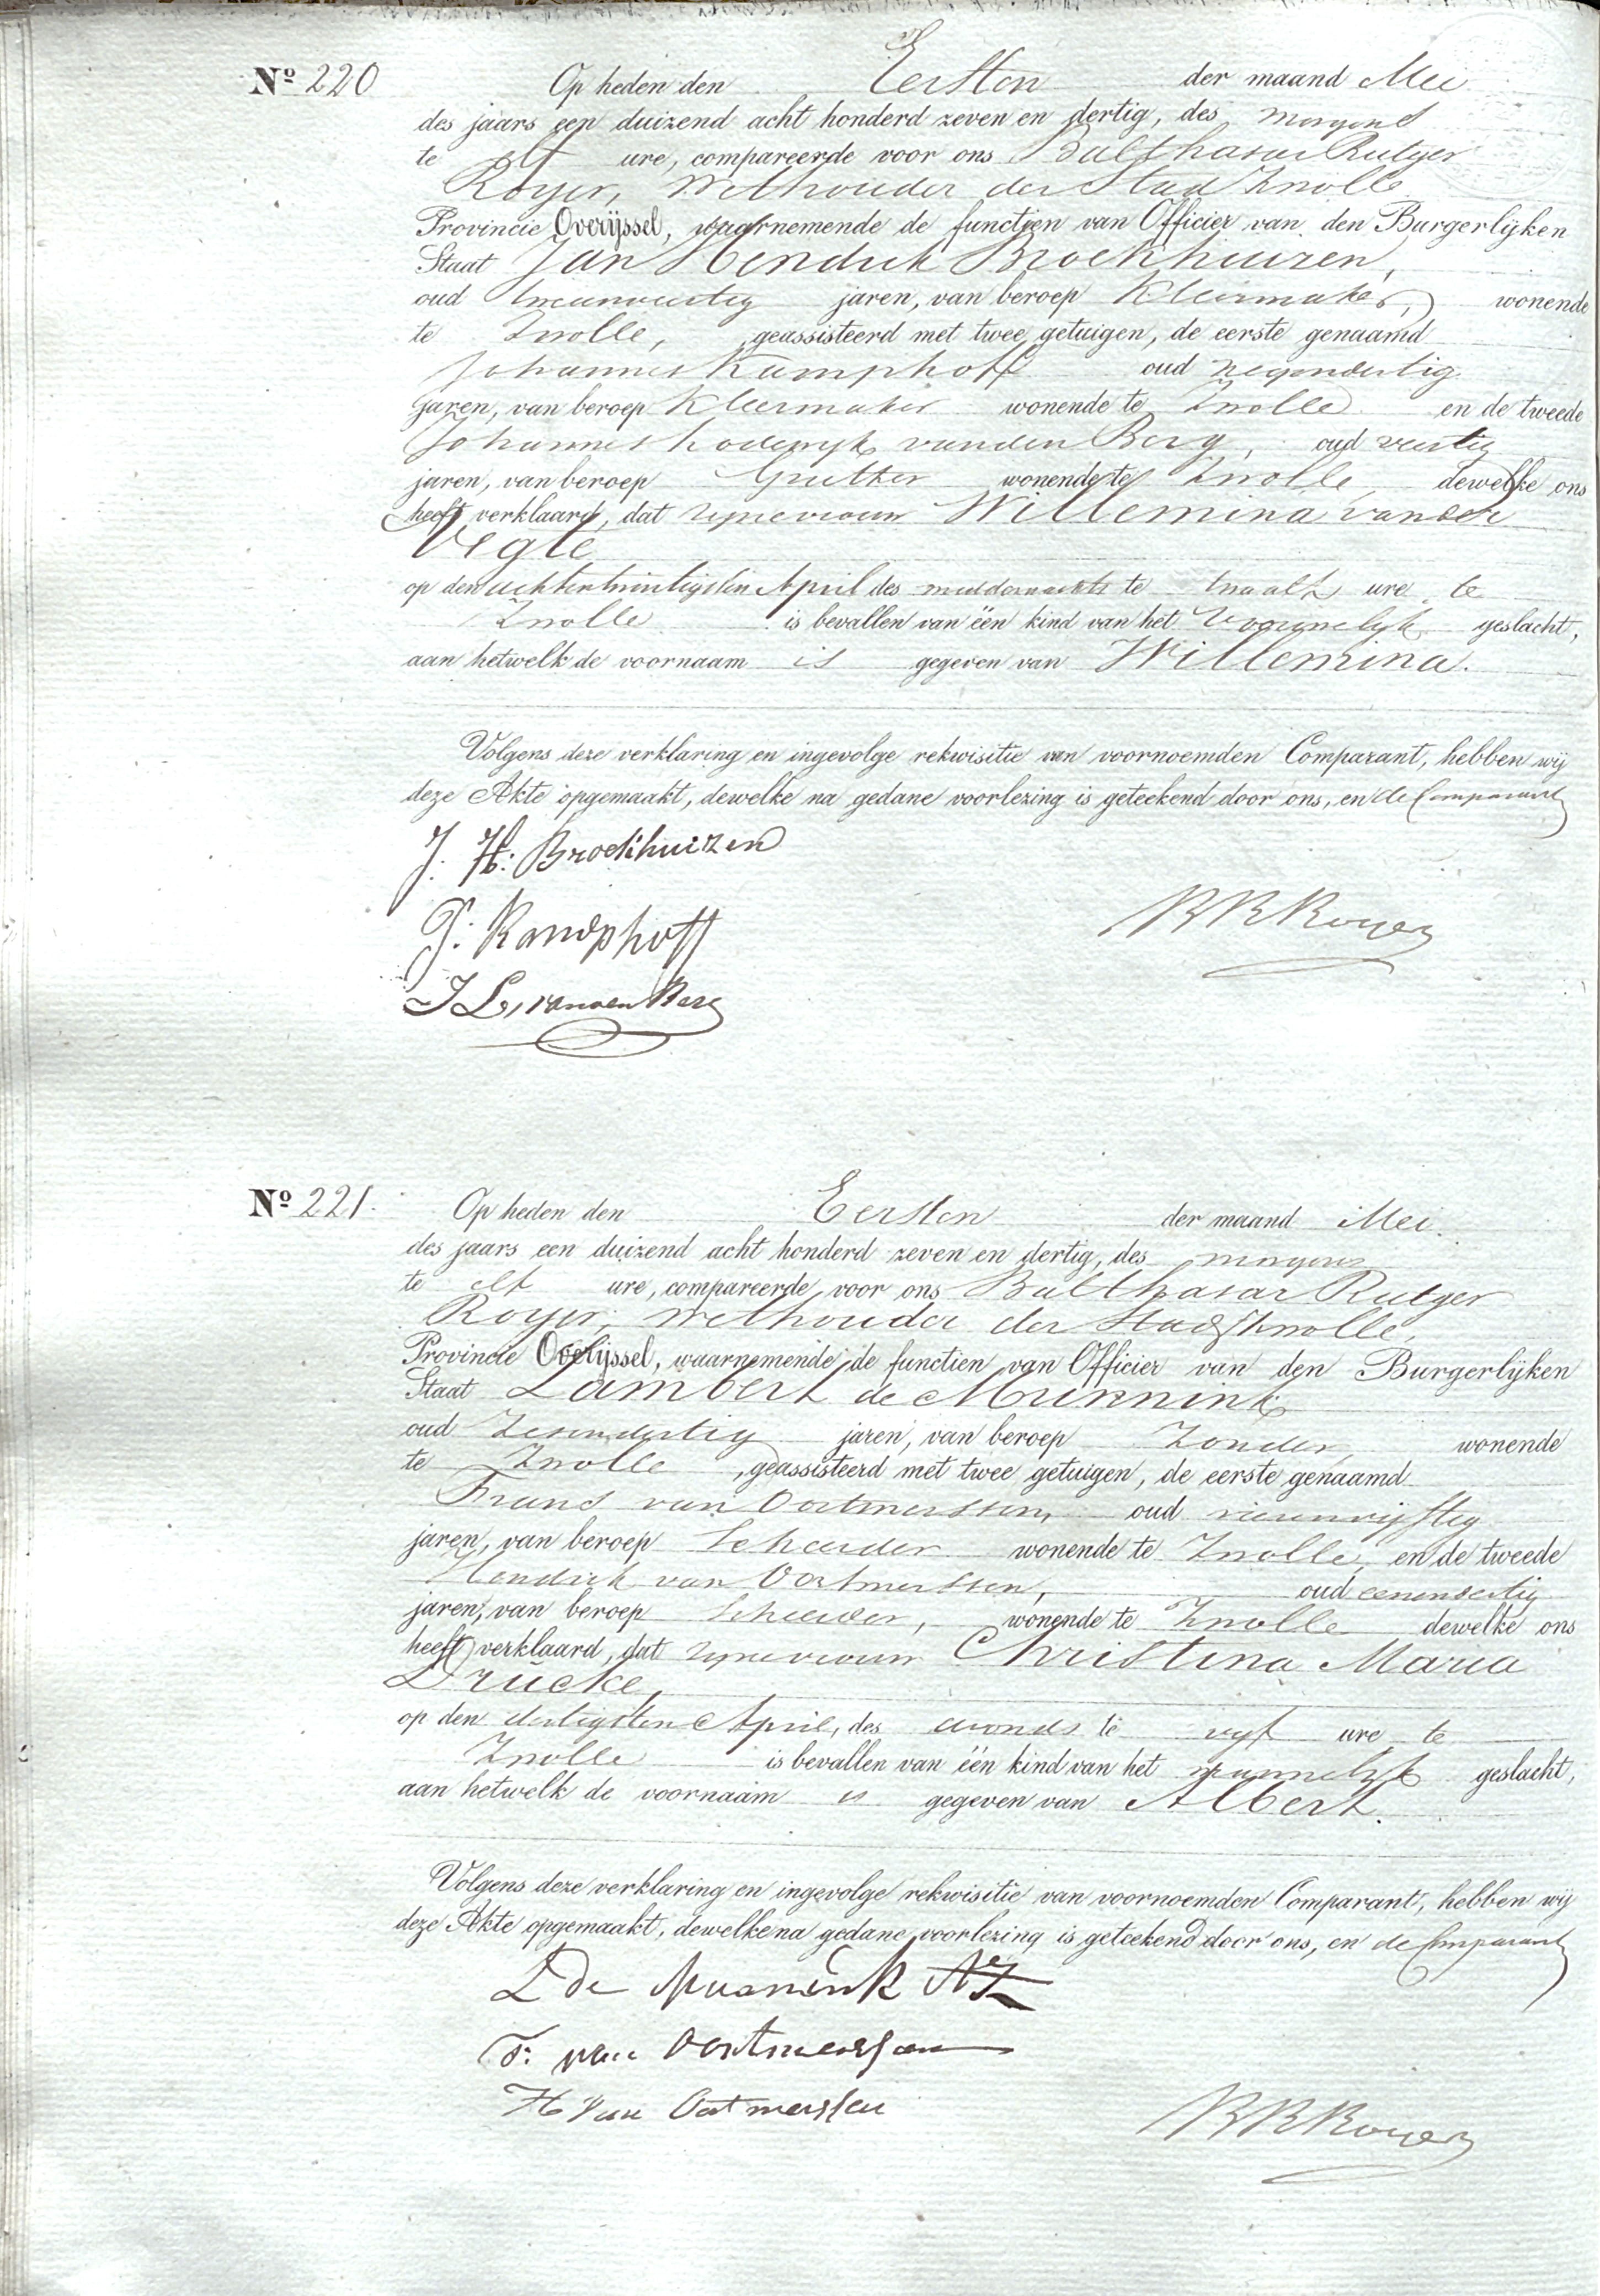 Nº 220 Op heden den Eersten der maand Mei
des jaars een duizend acht honderd zeven en dertig, des morgens
te elf ure, compareerde voor ons Balthasar Rutger
Royer, Wethouder der Stad Zwolle
Provincie Overijssel, waarnemende de functien van Officier van den Burgerlijken
Staat Jan Hendrik Broekhuizen,
oud jaren, van beroep Kleermaker, wonende
te Zwolle, geassisteerd met twee getuigen, de eerste genaamd
Johannes Kamphoff oud negendertig
jaren, van beroep Kleermaker wonende te Zwolle en de tweede
Johannes Lodewyk van den Berg, oud veertig
jaren, van beroep Grutter wonende te Zwolle, dewelke ons
heeft verklaard, dat zyne vrouw Willemina van der
Vegte
op den achtentwintigsten April des middernachts te twaalf ure te
Zwolle is bevallen van één kind van het Vrouwelyk geslacht,
aan hetwelk de voornaam is gegeven van Willemina.
Volgens deze verklaring en ingevolge rekwisitie van voornoemden Comparant, hebben wij
deze Akte opgemaakt, dewelke na gedane voorlezing is geteekend door ons, en de Comparant
J. H: Broekhuizen
J: Kamphoff
BRRoyer
J L, van den Berg
Nº 221. Op heden den Eersten der maand Mei.
des jaars een duizend acht honderd zeven en dertig, des morgens
te elf ure, compareerde voor ons Balthasar Rutger
Royer, Wethouder der Stad Zwolle,
Provincie Overijssel, waarnemende de functien van Officier van den Burgerlijken
Staat Lambert de Munnink
oud Zesendertig jaren, van beroep Zonder, wonende
te Zwolle, geassisteerd met twee getuigen, de eerste genaamd
Frans van Oortmerssen, oud vierenvijftig
jaren, van beroep Scheerder wonende te Zwolle, en de tweede
Hendrik van Oortmerssen, oud eenendertig
jaren, van beroep Scheerder, wonende te Zwolle dewelke ons
heeft verklaard, dat zyne vrouw Christina Maria
Drücke,
op den dertigsten April, des avonds te vyf ure te
Zwolle is bevallen van één kind van het mannelyk geslacht,
aan hetwelk de voornaam is gegeven van Albert.
Volgens deze verklaring en ingevolge rekwisitie van voornoemden Comparant, hebben wij
deze Akte opgemaakt, dewelke na gedane voorlezing is geteekend door ons, en de Comparant
L de Munnink AZ
F: van Oortmerssen
H van Oortmerssen
BRRoyer